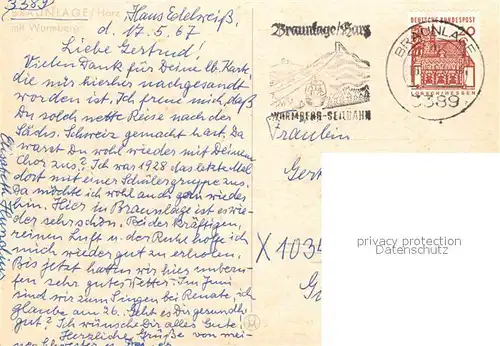 3389
BRAUNLAGE/Harz
mit Wurmberg
Haus Edelweiß,
d. 17.5.67
Liebe Gertrud!
Vielen Dank für Deine lb. Karte,
die mir hierher nachgesandt
worden ist. Ich freue mich, daß
Du solch nette Reise nach der
Sächs. Schweiz gemacht hast. Da
warst Du wohl wieder mit Deinem
Chor zus.? Ich war 1928 das letzte Mal
dort mit einer Schülergruppe aus.
Da möchte ich wohl auch gern wieder
hin. Hier in Braunlage ist es wie-
der sehr schön. Bei der kräftigen,
reinen Luft u. der Ruhe hoffe ich
mich wieder gut zu erholen.
Bis jetzt hatten wir hier unberu-
fen sehr gutes Wetter. Im Juni
sind wir zum Singen bei Renate, ich
glaube am 26. Geht es Dir gesundh.
gut? Ich wünsche Dir alles Gute!
Herzliche Grüße von mei-
Elisabeth
Braunlage/Harz
WURMBERG-SEILBAHN
DEUTSCHE BUNDESPOST
LORSCH/HESSEN
BRAUNLAGE
3389
Fräulein
Ger
X 1034
privacy protection
Datenschutz